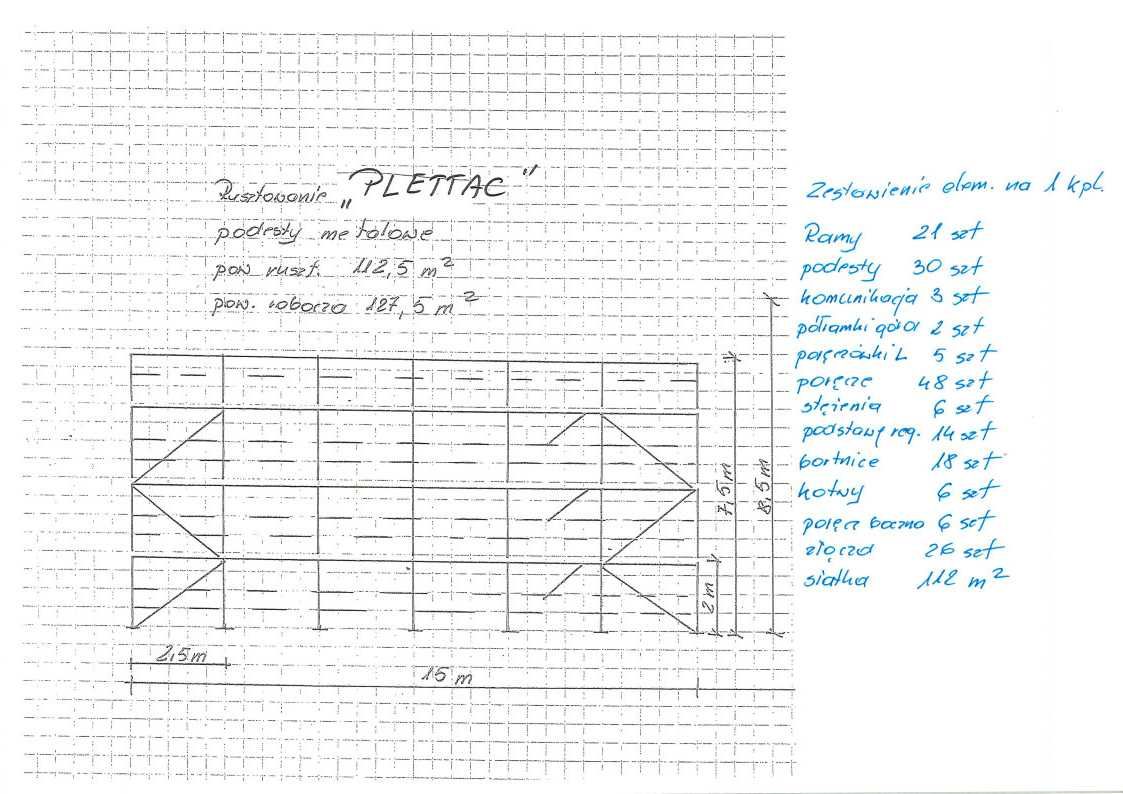 Rusztowanie „PLETTAC"
podesty metalowe
pow ruszt. 112,5 m²
pow. robocza 127,5 m²
7,5 m
8,5 m
2 m
2,5 m
15 m
Zestawienie elem. na 1 kpl.
Ramy 21 szt
podesty 30 szt
komunikacja 3 szt
półramki góra 2 szt
poręczówki L 5 szt
poręcze 48 szt
stężenia 6 szt
podstawy reg. 14 szt
bortnice 18 szt
kotwy 6 szt
poręcz boczna 6 szt
złącza 26 szt
siatka 112 m²